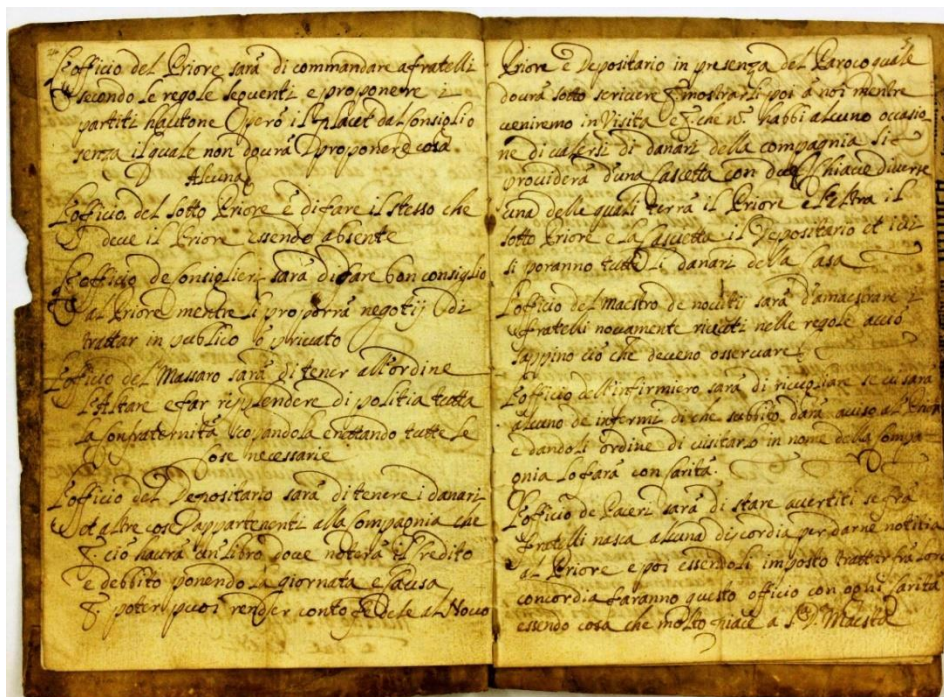 L'officio del Priore sarà di commandare a fratelli
secondo le regole seguenti e proporere i
partiti hautone Però il Placet dal Consiglio
senza il quale non dourà proponere cosa
Alcuna
L'officio del Sotto Priore è di fare il stesso che
deue il Priore essendo absente
L'officio de Consiglieri sarà di dare bon consiglio
al Priore mentre li proporrà negotij di
trattar in publico ò priuato
L'officio del Massaro sarà di tener all'ordine
L'Altare e far risplendere di politia tutta
la Confraternità scopandola e nettando tutte le
Cose necessarie
L'officio del Depositario sarà di tenere i danari
et altre cose appartenenti alla Compagnia che
ciò haurà un libro doue noterà il Credito
e debbito ponendo la giornata e Causa
poter puoi render conto fedele al Nouo
Priore e Depositario in presenza del Paroco quale
dourà sotto scriuere mostrarli poi à noi mentre
ueniremo in Visita e che habbi alcuno occasio
ne di ualersi di danari della compagnia si
prouiderà d'una Cascetta con due Chiaue diuerse
una delle quali terrà il Priore e l'Altra il
sotto Priore e la Cascietta il Depositario et iui
si poranno tutti li danari della Casa
L'officio del Maestro de nouitij sarà d'amaestrare i
fratelli nouamente riceuti nelle regole acciò
sappino ciò che deueno osseruare
L'officio dell'infirmiero sarà di inuigliare se ui sarà
alcuno de infermi di che subbito darà auiso al Priore
e dandoli ordine di uisitarlo in nome della Compa
gnia lo farà con Carità.
L'officio de Pacieri sarà di stare auertiti se frà
fratelli nasca alcuna discordia per darne notitia
al Priore e poi essendoli imposto trattar frà loro
concordia faranno questo officio con ogni Carità
essendo cosa che molto piace a S. D. Maestà